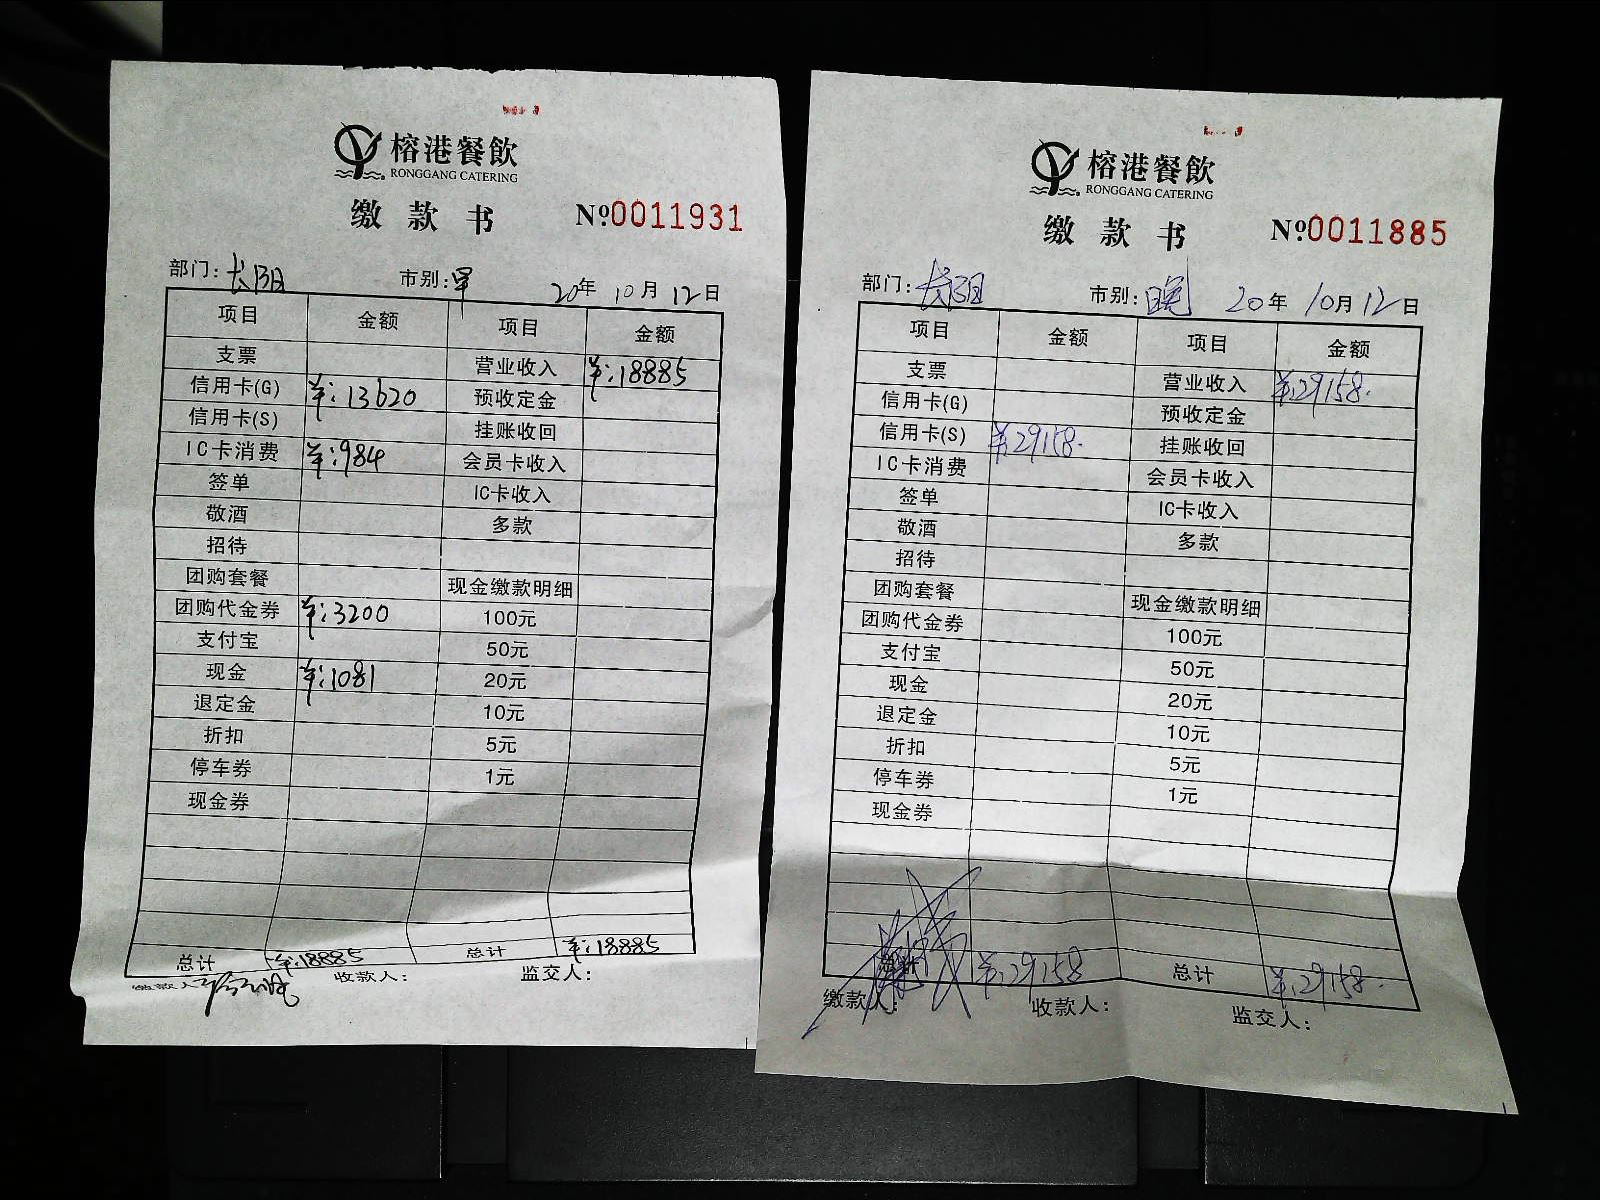 榕港餐飲
RONGGANG CATERING
缴款书 №0011931
部门：长阳 市别：早 20年10月12日
项目 金额 项目 金额
支票 营业收入 ¥:18885
信用卡(G) ¥:13620 预收定金
信用卡(S) 挂账收回
IC卡消费 ¥:984 会员卡收入
签单 IC卡收入
敬酒 多款
招待
团购套餐 现金缴款明细
团购代金券 ¥:3200 100元
支付宝 50元
现金 ¥:1081 20元
退定金 10元
折扣 5元
停车券 1元
现金券
总计 ¥:18885 总计 ¥:18885
缴款人 收款人： 监交人：
榕港餐飲
RONGGANG CATERING
缴款书 №0011885
部门：长阳 市别：晚 20年10月12日
项目 金额 项目 金额
支票 营业收入 ¥:29158.
信用卡(G) 预收定金
信用卡(S) ¥:29158. 挂账收回
IC卡消费 会员卡收入
签单 IC卡收入
敬酒 多款
招待
团购套餐 现金缴款明细
团购代金券 100元
支付宝 50元
现金 20元
退定金 10元
折扣 5元
停车券 1元
现金券
总计 ¥:29158 总计 ¥:29158.
缴款人： 收款人： 监交人：